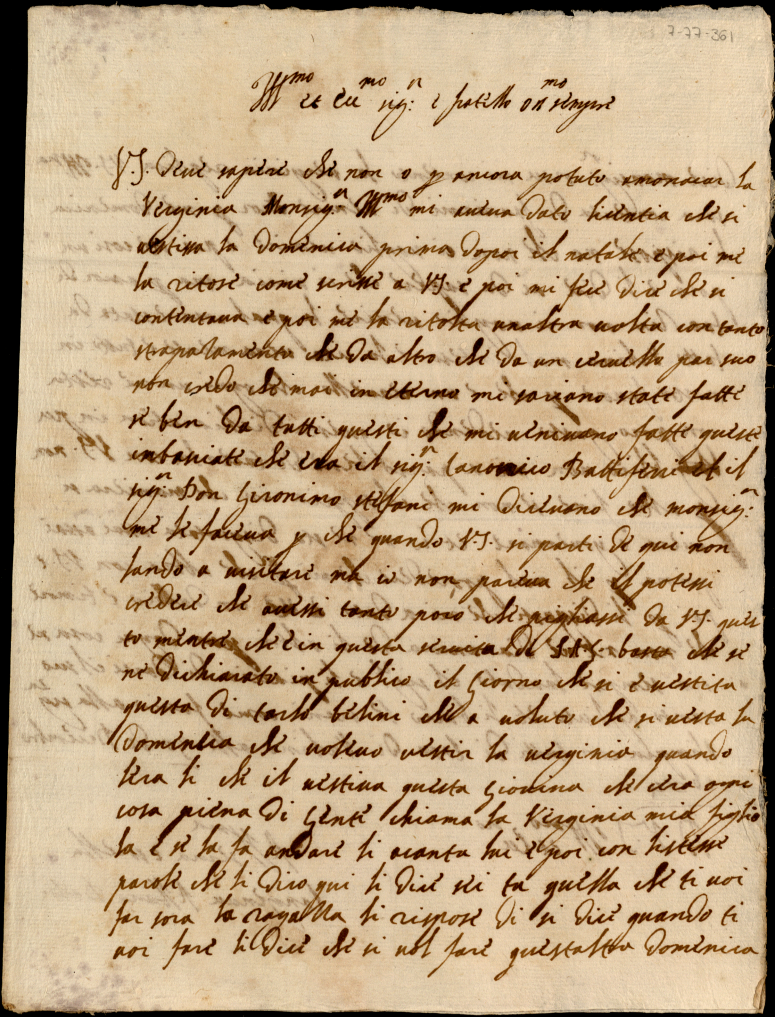 7-77-361
Ill.mo et Ecc.mo sig.r e fratello on.mo sempre
V.S. deve sapere che non o p ancora potuto amonacar la
Verginia Monsig.r Ill.mo mi aveva dato licentia che si
vestissa la domenica prima dopoi il natale e poi me
la ritose come scrisse a VS. e poi mi fece dice che si
contentava e poi me la ritolta unaltra volta con tanto
strapalamento che da altro che da un cervello par suo
non credo che mai in eterno mi sariano state fatte
se ben da tutti questi che mi venivano fatte queste
imbaciate che era il sig.r Canonico Battiferi et il
sig.r Don Gironimo stefani mi dicevano che monsig.r
me le faceva p che quando V.S. si parti de qui non
lando a visitare ma ie non pareva che il potessi
credere che avessi tanto poco che pigliassi da V.S. ques
to mentre che è in questa servita de S.A.S. basta che se
ne dichiarato in publico il Giorno che si e vestita
questa di carlo belini che a voluto che si vesta la
domenica che volevo vestir la verginia quando
lera li che il vestiva questa Giovina che cera ogni
cosa piena di Gente chiama la Verginia mia figlio
la e se la fa andare li acanta lui e poi con listesse
parole che li dico qui li dice sei tu quella che ti voi
far sora la ragazza li rispose di si dice quando ti
voi fare li dice che si vol fare questaltra domenica